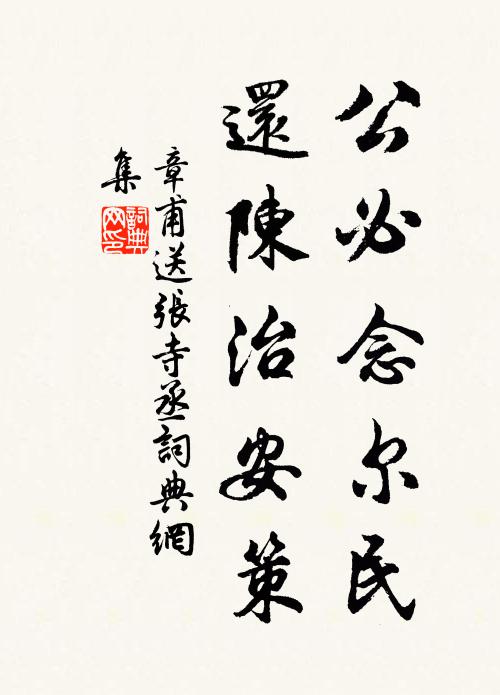 公必念尔民
還陳治安策
章甫送張寺丞詞典網
集
詞典
网印